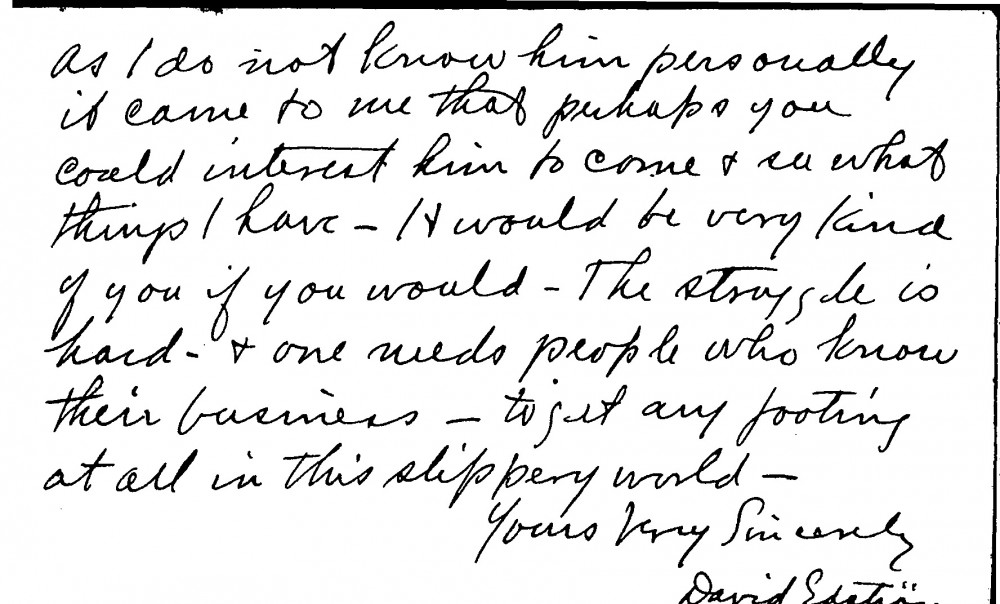 As I do not know him personally
it came to me that perhaps you
could interest him to come & see what
things I have – It would be very kind
of you if you would – The struggle is
hard – & one needs people who know
their business – to get any footing
at all in this slippery world –
Yours Very Sincerely
David